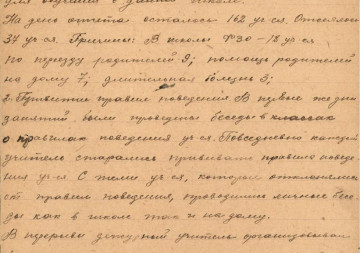 для обучения в данной школе.
На день отчета осталось 162 уч-ся. Отсеялось
37 уч-ся. Причины: В школы ФЗО - 18 уч-ся
по переезду родителей 9; помощь родителей
на дому 7; длительная болезнь 3;
2. Привитие правил поведения В первые же дни
занятий были проведены беседы в классах
о правилах поведения уч-ся. Повседневно каждый
учитель старались прививать правила поведе
ния уч-ся С теми уч-ся, которые отклонялись
от правил поведения, проводились личные бесе
ды как в школе так и на дому.
В перерывы дежурный учитель организовывал